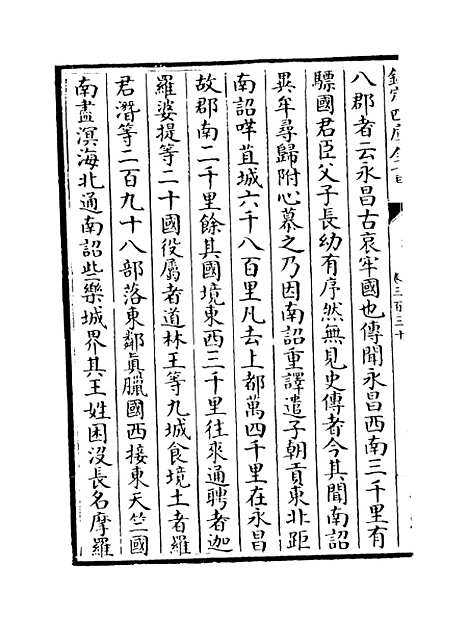 欽定四庫全書
卷三百三十
八郡者云永昌古哀牢國也傳聞永昌西南三千里有
驃國君臣父子長幼有序然無見史傳者今其聞南詔
異牟尋歸附心慕之乃因南詔重譯遣子朝貢東北距
南詔哶苴城六千八百里凡去上都萬四千里在永昌
故郡南二千里餘其國境東西三千里往來通聘者迦
羅婆提等二十國役屬者道林王等九城食境土者羅
君潛等二百九十八部落東鄰真臘國西接東天竺國
南盡溟海北通南詔些樂城界其王姓困沒長名摩羅